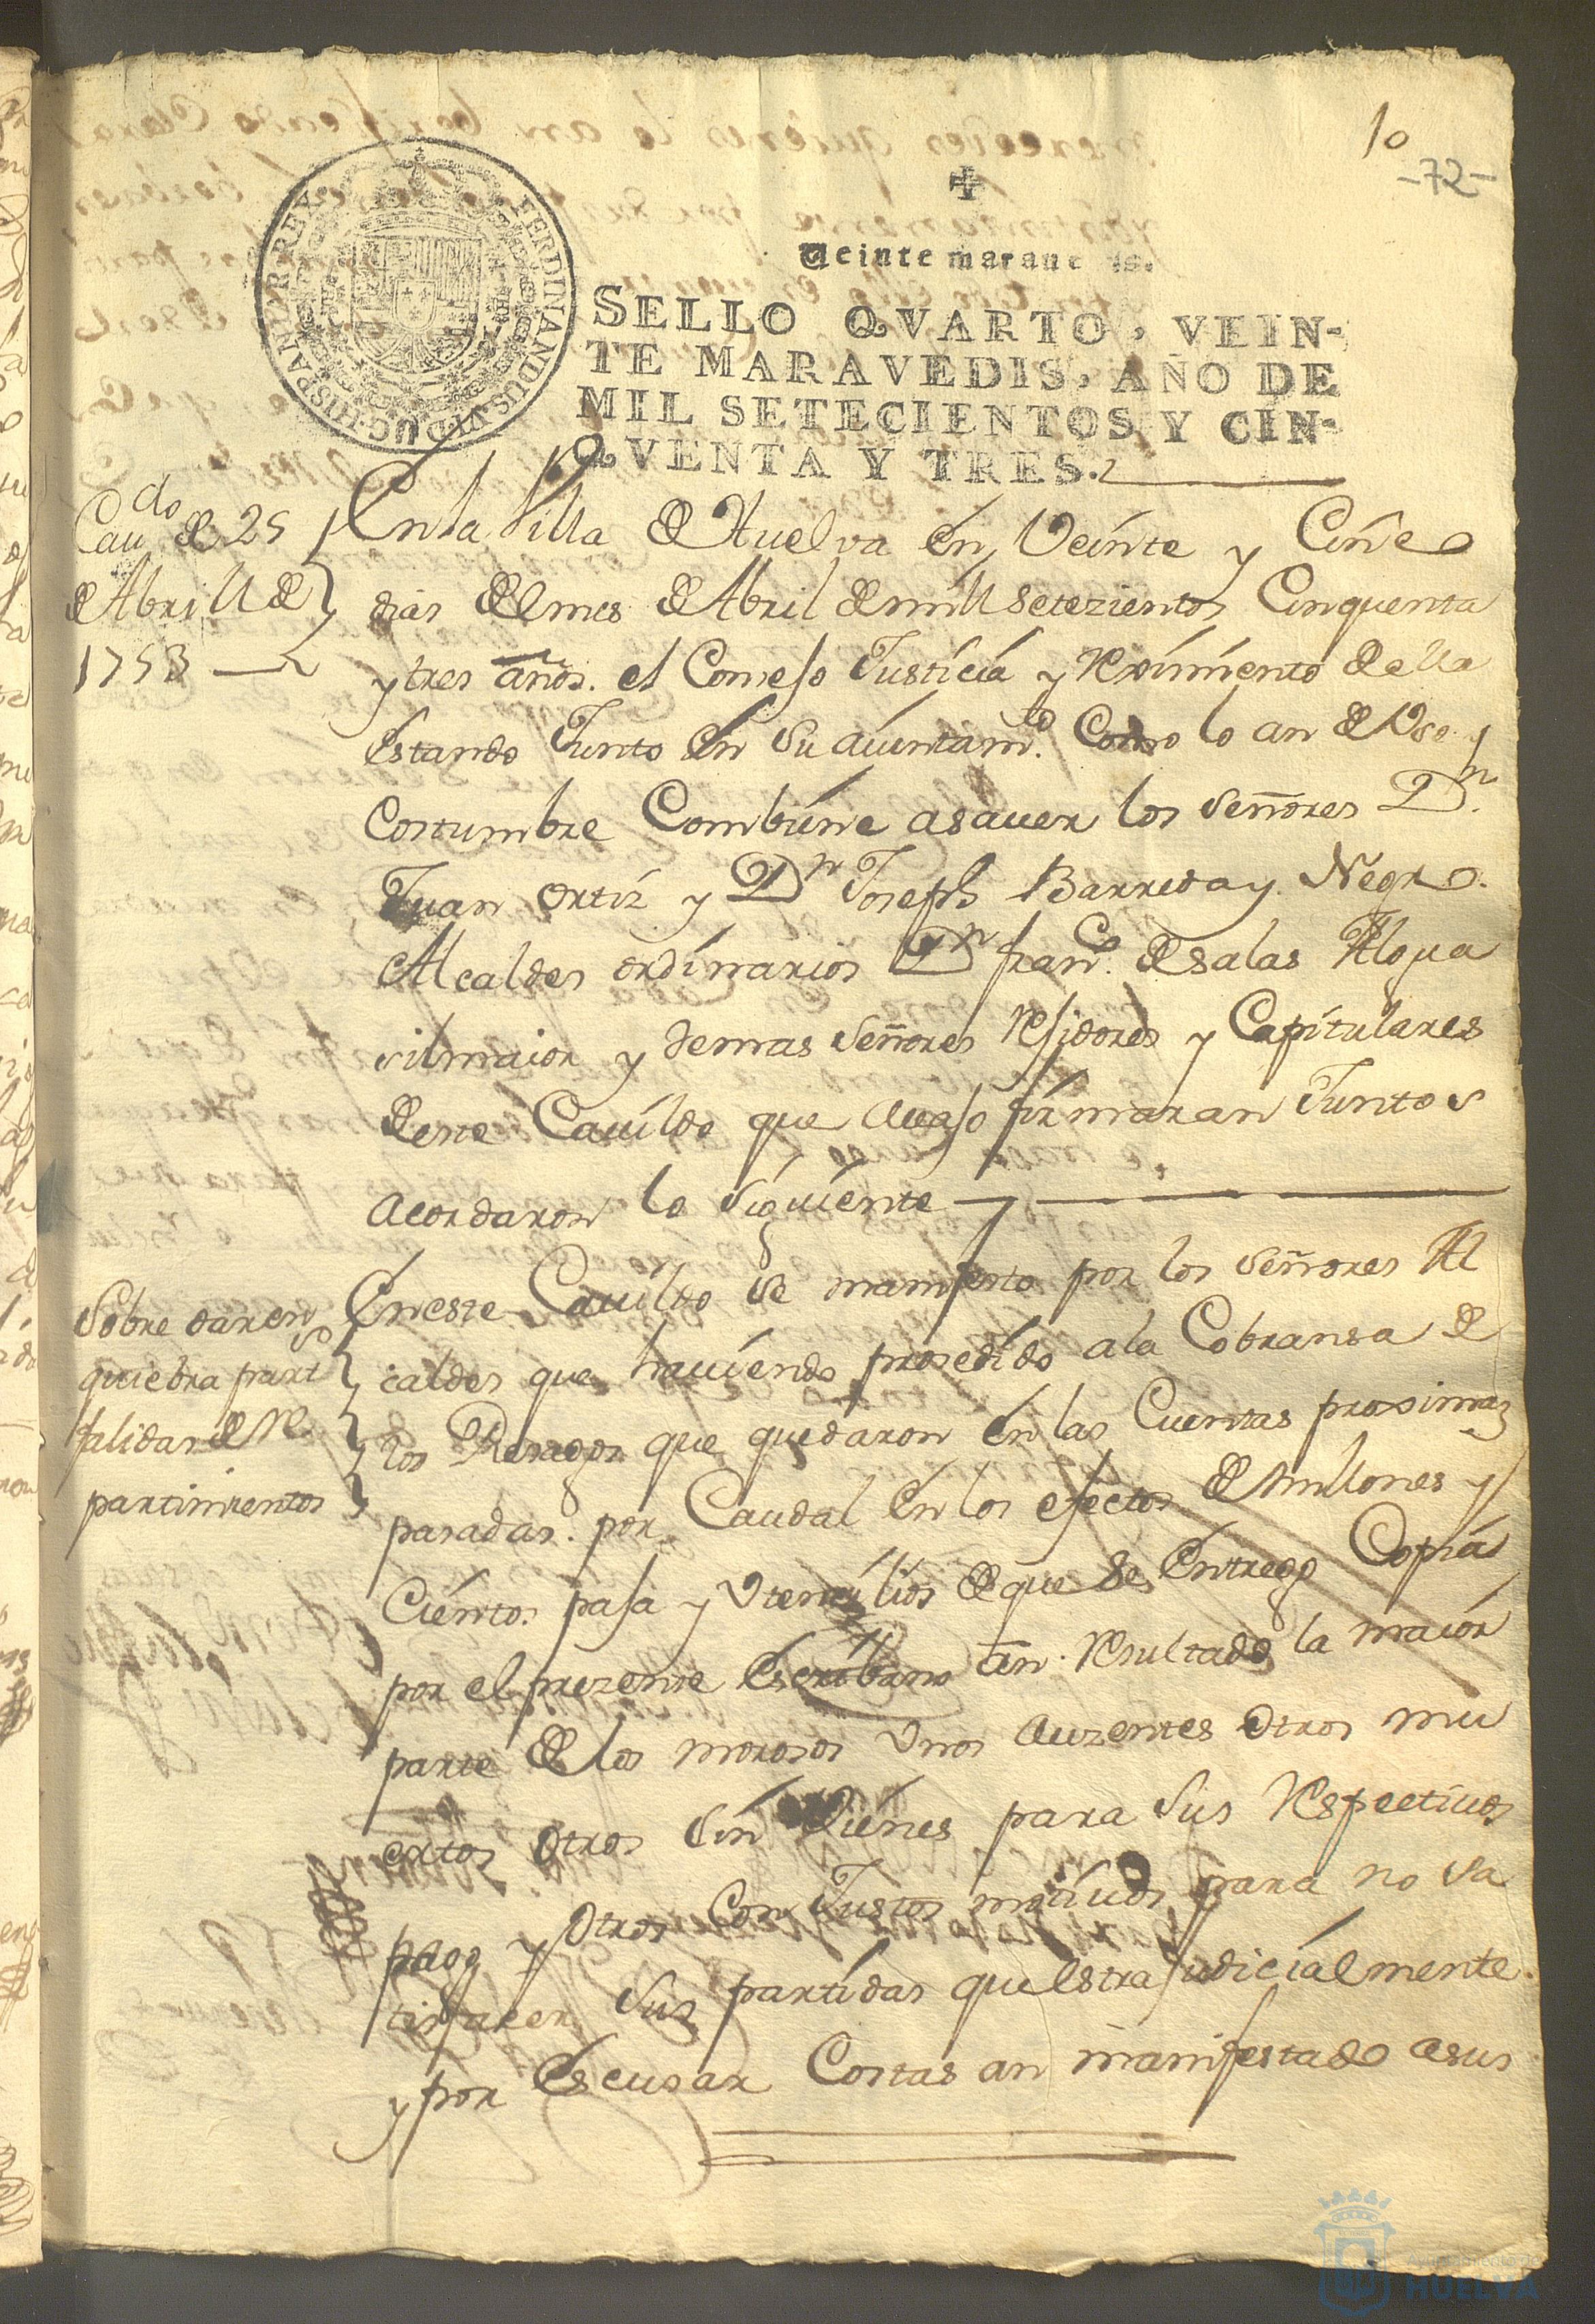 10
-72-
✠
Veinte maraue is.
FERDINANDUS VI D G HISPANIAR REX
SELLO QVARTO, VEIN-
TE MARAVEDIS, AÑO DE
MIL SETECIENTOS Y CIN-
QVENTA Y TRES.
Caudo de 25
de Abrill de
1753
En la Villa de Huelva en Veinte y Cinco
dias del mes de Abril de mill setezientos Cinquenta
y tres años. el Consejo Justicia y Reximiento della
estando Junto en su auintamto. Como lo an de Vso y
Costumbre Combiene asauer los señores Dn.
Juan ortiz y Dn Joseph Barreda y Negro.
Alcaldes ordinarios Dn franco. de salas Algua
silmaior y demas señores Rejidores y Capitulares
deste Cauildo que avajo firmaran Juntos
acordaron lo siguiente
Sobre dar en
quiebra part
falidas de Re
partimientos
En este Cauildo se manifesto por los señores Al
caldes que hauiendo prosedido a la Cobransa de
los Resagos que quedaron en las Cuentas proximas
pasadas. por Caudal en los efectos de millones y
Cientos paja y Vtensilios de que se entrego Copia
por el prezente Escribano an Resultado la maior
parte de los morosos Vnos auzentes otros mu
ertos otros sin Vienes para sus Respectivos
pago y otros Con Justos motiuos para no sa
tisfacer sus partidas que Estrajudicialmente
y por Escusar Costas an manifestado a sus
Ayuntamiento de
HUELVA